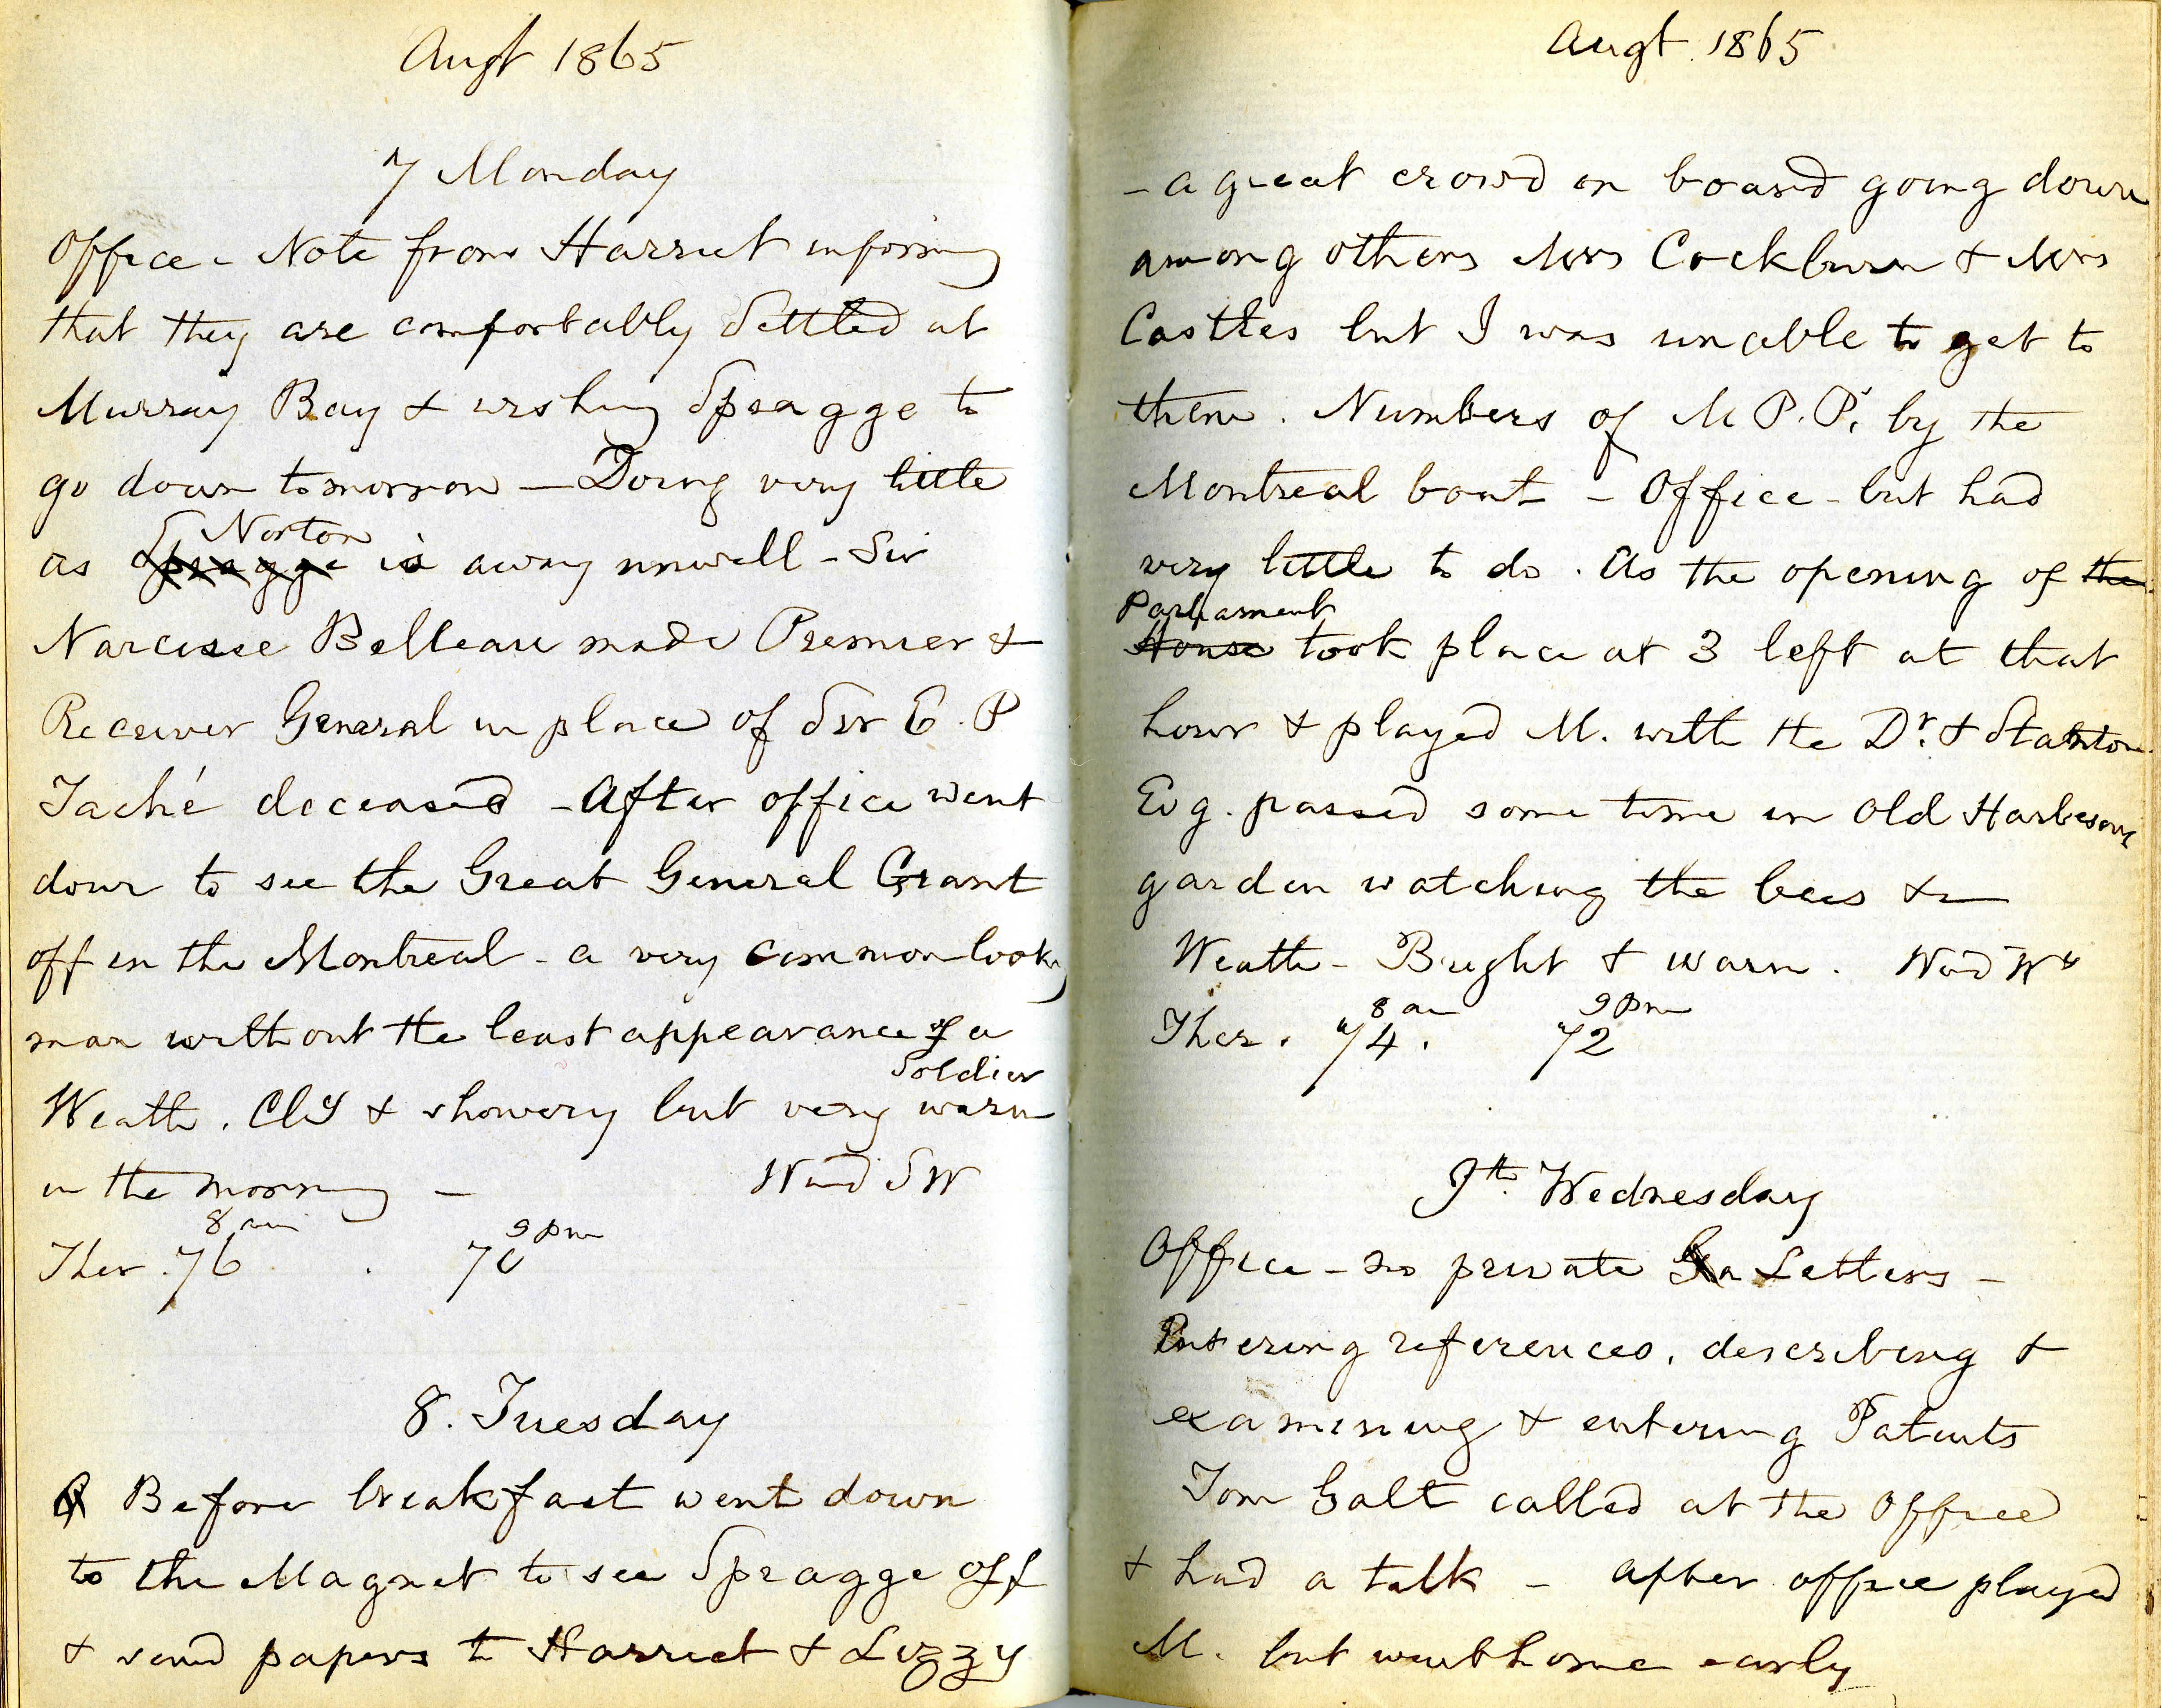 Augt 1865
7 Monday
Office - Note from Harriet informing
that they are comfortably settled at
Murray Bay & wishing Spragge to
go down tomorrow - Doing very little
Norton
as Spragge is away unwell - Sir
Narcisse Belleau made Premier &
Receiver General in place of Sir E. P
Taché deceased - After office went
down to see the Great General Grant
off in the Montreal - a very common looking
man without the least appearance of a
Soldier
Weath. Cly & showery but very warm
in the morning - Wind SW
8 am 9 pm
Ther. 76 . 70
8. Tuesday
Before breakfast went down
to the Magnet to see Spragge off
& send papers to Harriet & Lizzy
Augt. 1865
- a great crowd on board going down
among others Mrs Cockburn & Mrs
Castles but I was unable to get to
them. Numbers of M P. P. by the
Montreal boat - Office - but had
very little to do. As the opening of the
Parliament
House took place at 3 left at that
hour & played M. with the Dr. & Stanton
Evg. passed some time in Old Harbesons
garden watching the bees &c
Weath - Bright & warm. Wind W
8 am 9 pm
Ther. 74. 72
9th. Wednesday
Office - no private Ga Letters -
Entering references, describing &
examining & entering Patents
Tom Galt called at the Office
& had a talk - after office played
M. but went home early